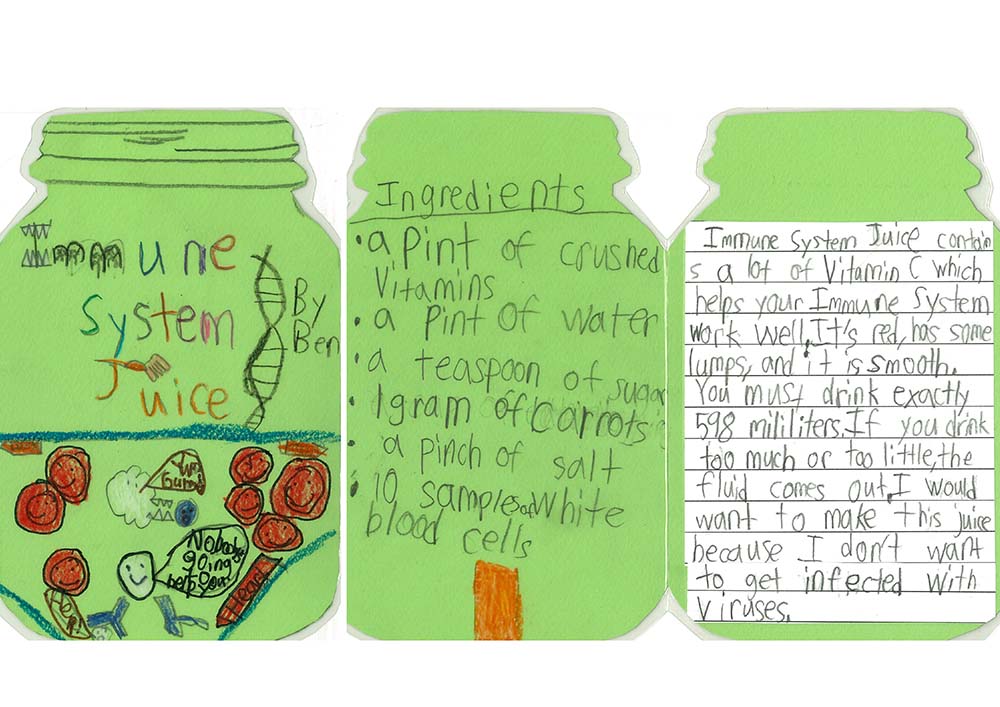 Immune
System
Juice
By
Ben
Yum
Nobodys
going
help you
Help!
Head
Ingredients
• a Pint of crushed
Vitamins
• a Pint Of water
• a teaspoon of sugar
• 1gram of carrots
• a pinch of salt
• 10 samples of White
blood cells
Immune System Juice contain
s a lot of Vitamin C which
helps your Immune System
work well. It's red, has some
lumps, and it is smooth.
You must drink exactly
598 mililiters. If you drink
too much or too little, the
fluid comes out. I would
want to make this juice
because I don't want
to get infected with
viruses.